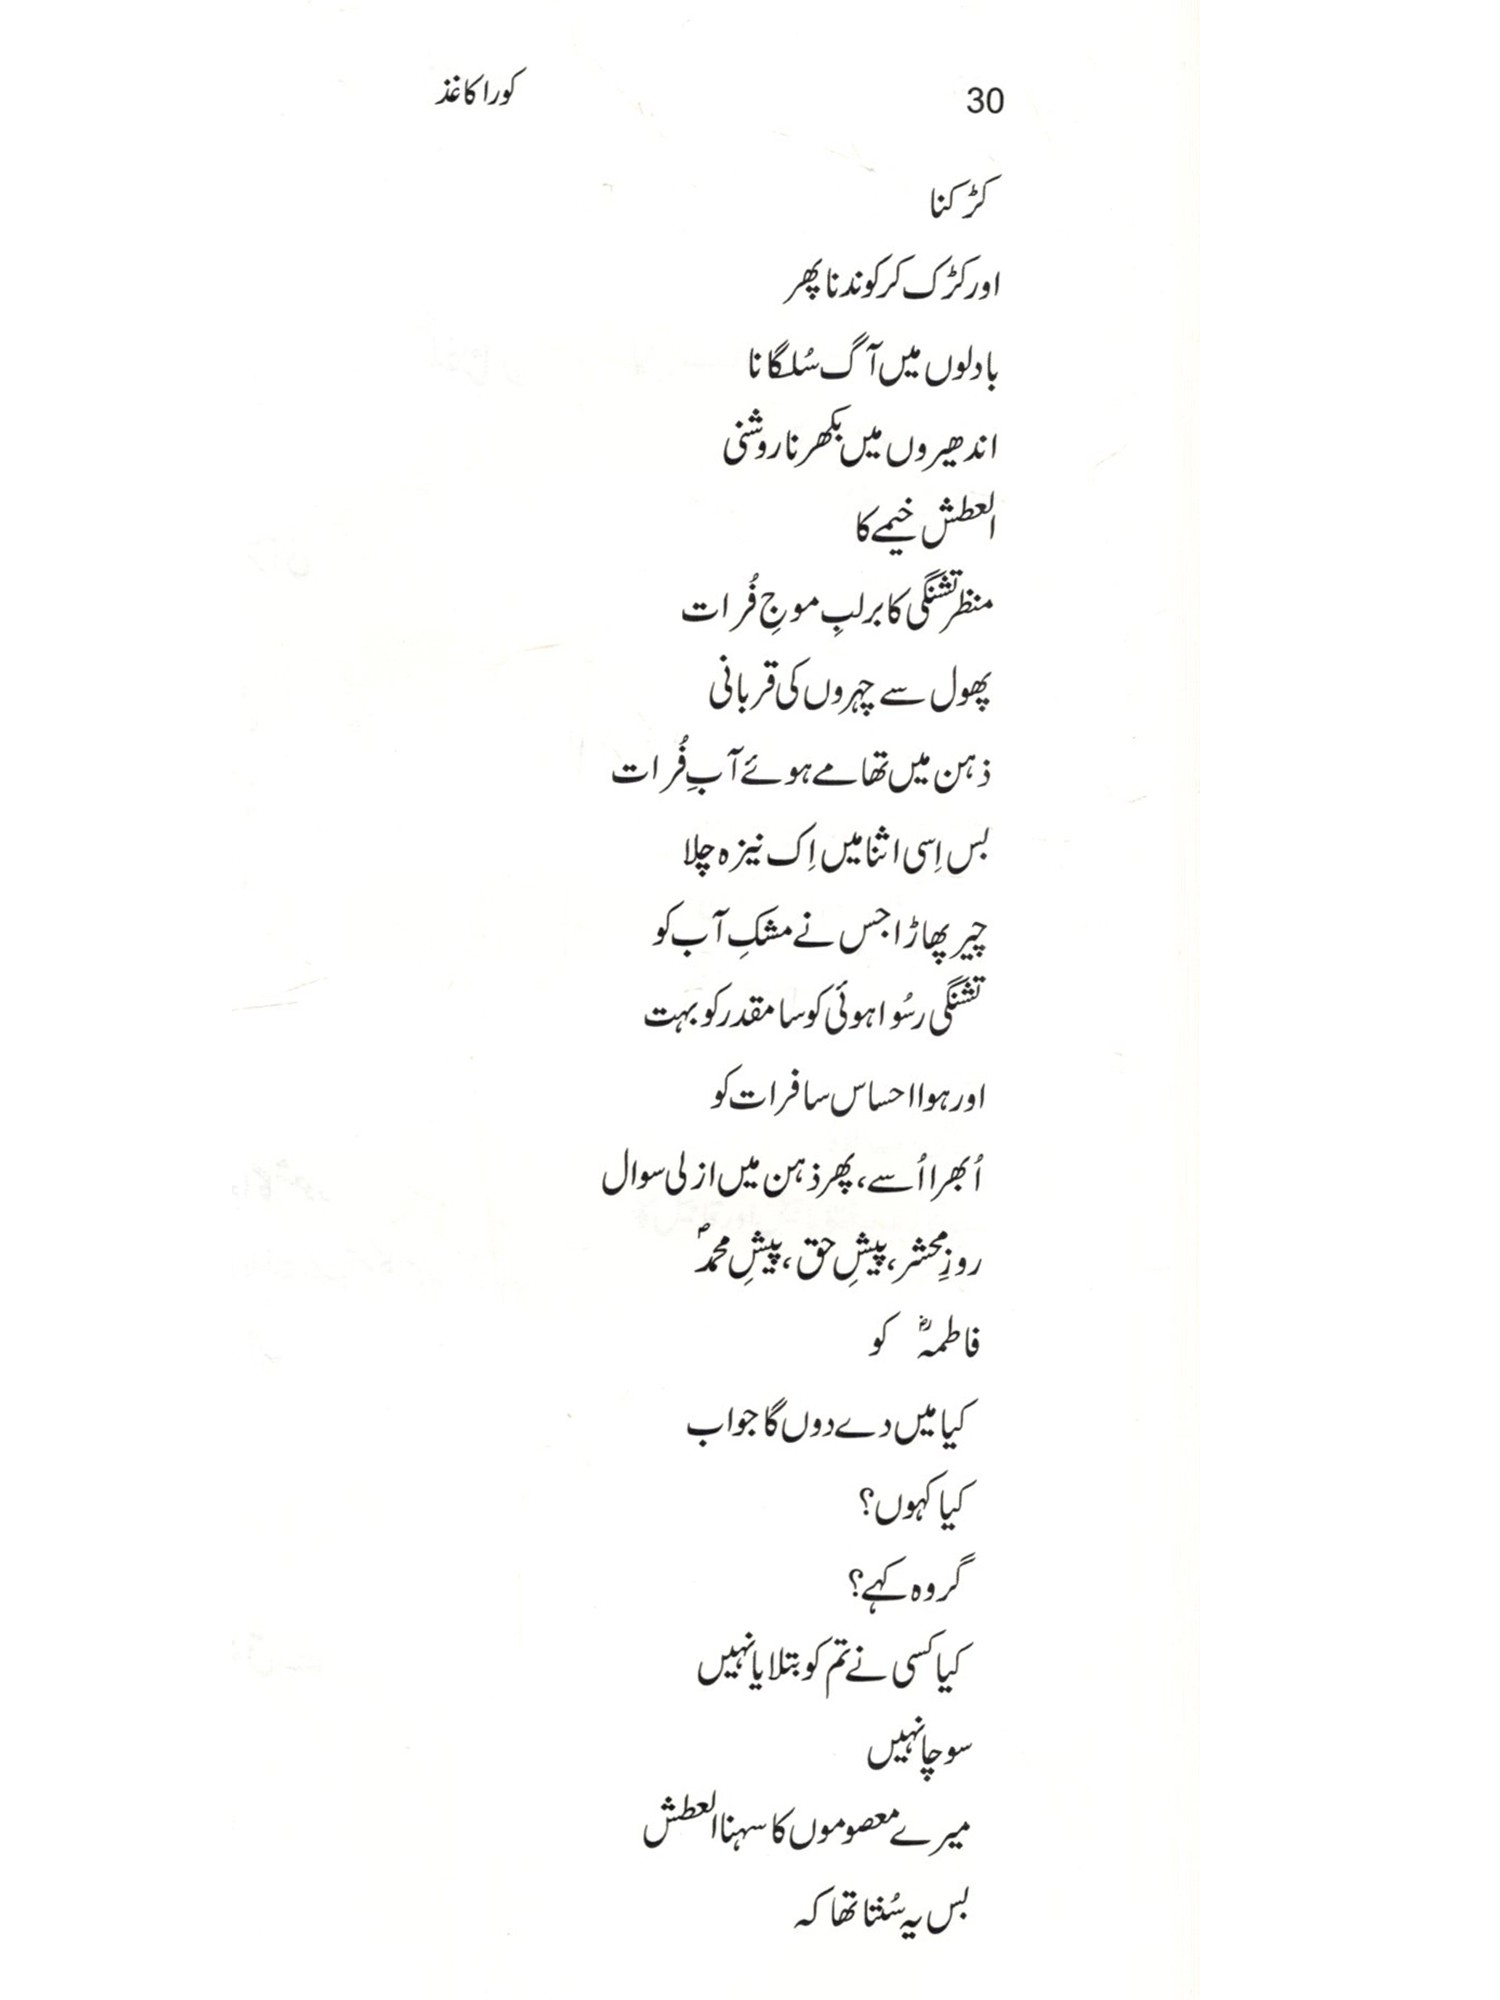 30 کورا کاغذ
کڑکنا
اور کڑک کر کوندنا پھر
بادلوں میں آگ سُلگانا
اندھیروں میں بکھرنا روشنی
العطش خیمے کا
منظر تشنگی کا برلبِ موجِ فُرات
پھول سے چہروں کی قربانی
ذہن میں تھامے ہوئے آبِ فُرات
بس اِسی اثنا میں اِک نیزہ چلا
چیر پھاڑا جس نے مشکِ آب کو
تشنگی رسُوا ہوئی کوسا مقدر کو بہت
اور ہوا احساس سا فرات کو
اُبھرا اُسے، پھر ذہن میں ازلی سوال
روزِ محشر، پیشِ حق، پیشِ محمدؐ
فاطمہؓ کو
کیا میں دے دوں گا جواب
کیا کہوں؟
گر وہ کہے؟
کیا کسی نے تم کو بتلایا نہیں
سوچا نہیں
میرے معصوموں کا سہنا العطش
بس یہ سُنتا تھا کہ